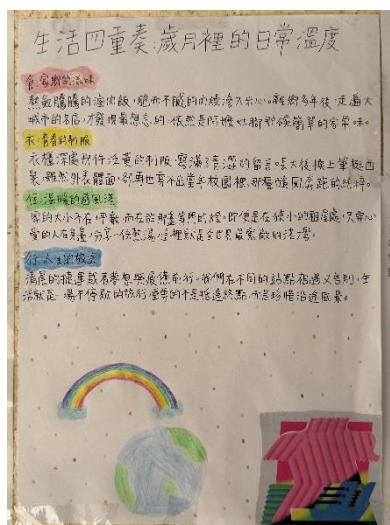 生活四重奏:歲月裡的日常溫度
食:家鄉的滋味
熱氣騰騰的滷肉飯,肥而不膩的肉燥滲入米心。離鄉多年後,走遍大
城市的名店,才發現最想念的,依然是阿嬤灶腳那碗簡單的家常味。
衣:青春的制服
衣櫃深處那件泛黃的制服,寫滿了青澀的留言。長大後換上筆挺西
裝,雖然外表體面,卻再也穿不出當年校園裡,那種隨風奔跑的純粹。
住:溫暖的避風港
家的大小不在坪數,而在於那盞等門的燈。即便是在狹小的租屋處,只要心
愛的人在身邊,分享一份熱湯,這裡就是全世界最寬敞的港灣。
行:人生的旅途
清晨的捷運載著夢想與疲憊前行。我們在不同的站點相遇又告別,生
活就是一場不停歇的旅行,重要的不是抵達終點,而是珍惜沿途風景。